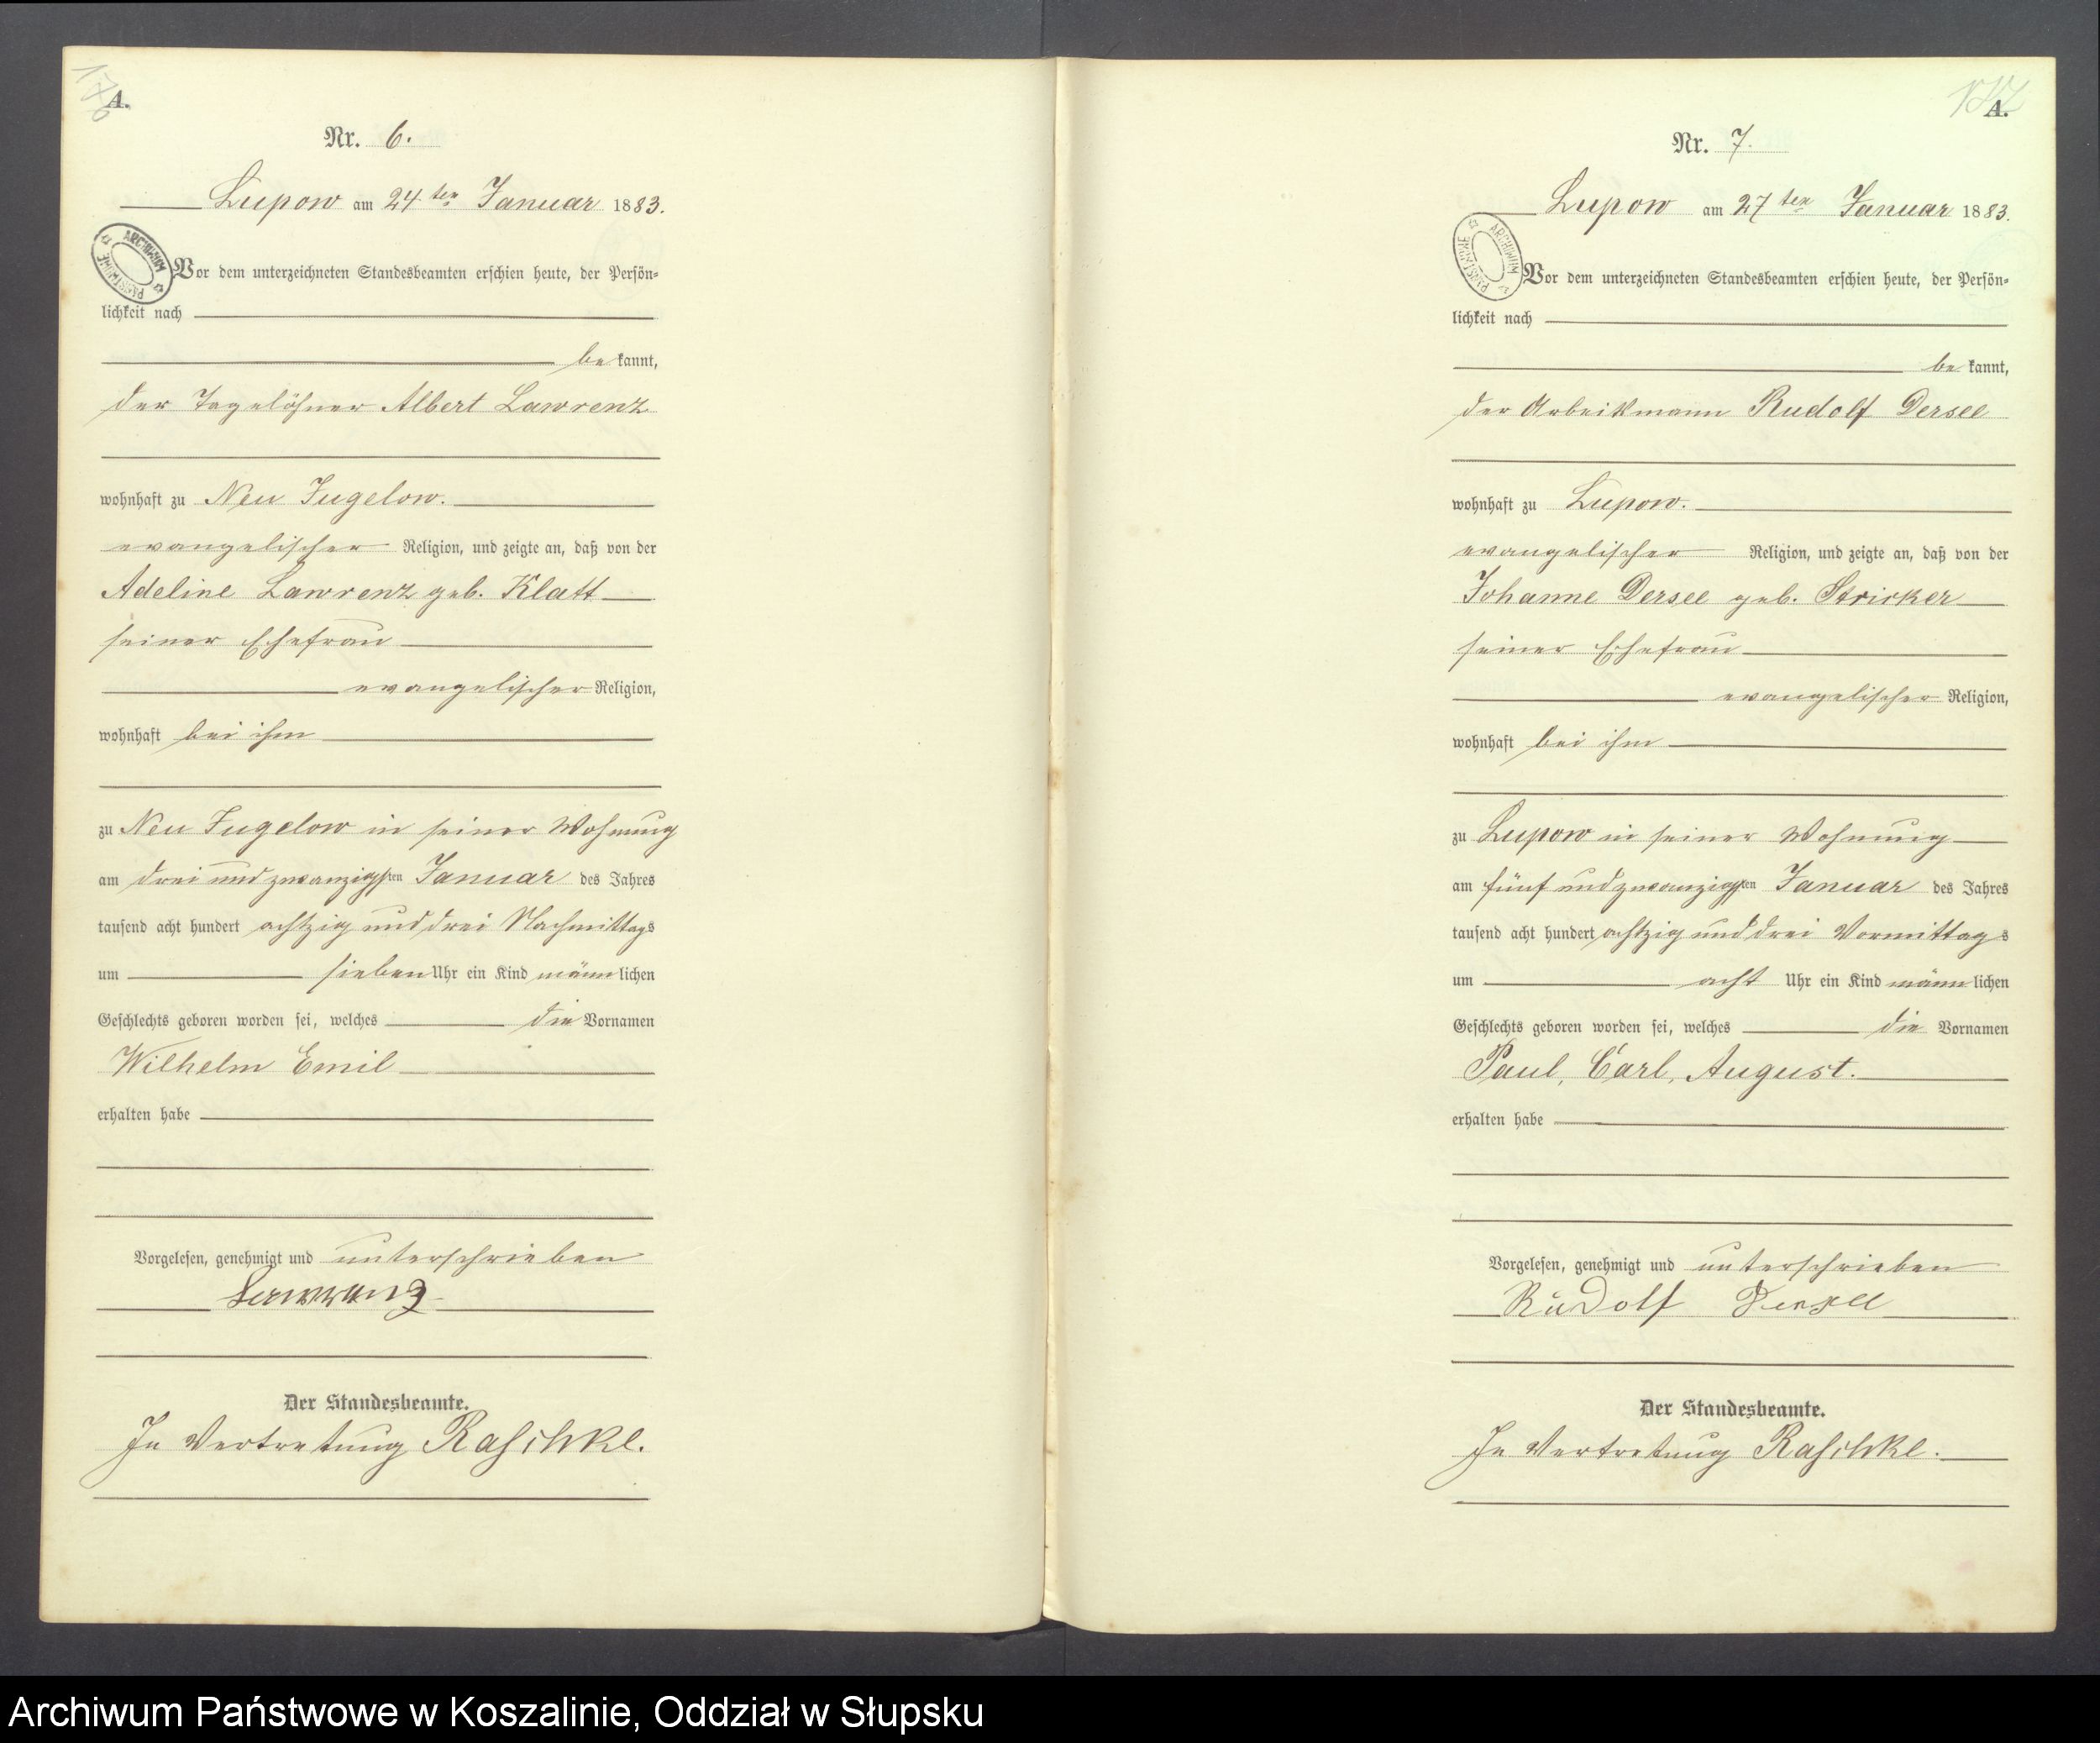 A.
Nr. 6.
Lupow am 24ten Januar 1883.
ARCHIWUM PAŃSTWOWE
Vor dem unterzeichneten Standesbeamten erschien heute, der Persön=
lichkeit nach
be kannt,
der Tagelöhner Albert Lawrenz
wohnhaft zu Neu Jugelow.
evangelischer Religion, und zeigte an, daß von der
Adeline Lawrenz geb. Klatt
seiner Ehefrau
evangelischer Religion,
wohnhaft bei ihm
zu Neu Jugelow in seiner Wohnung
am drei und zwanzigsten Januar des Jahres
tausend acht hundert achtzig und drei Nachmittags
um sieben Uhr ein Kind männlichen
Geschlechts geboren worden sei, welches die Vornamen
Wilhelm Emil
erhalten habe
Vorgelesen, genehmigt und unterschrieben
Lawrenz
Der Standesbeamte.
In Vertretung Raschke.
A.
Nr. 7.
Lupow am 27ten Januar 1883.
ARCHIWUM PAŃSTWOWE
Vor dem unterzeichneten Standesbeamten erschien heute, der Persön=
lichkeit nach
be kannt,
der Arbeitsmann Rudolf Dersee
wohnhaft zu Lupow.
evangelischer Religion, und zeigte an, daß von der
Johanne Dersee geb. Stricker
seiner Ehefrau
evangelischer Religion,
wohnhaft bei ihm
zu Lupow in seiner Wohnung
am fünf und zwanzigsten Januar des Jahres
tausend acht hundert achtzig und drei Vormittags
um acht Uhr ein Kind männlichen
Geschlechts geboren worden sei, welches die Vornamen
Paul, Carl, August.
erhalten habe
Vorgelesen, genehmigt und unterschrieben
Rudolf
Der Standesbeamte.
In Vertretung Raschke.
Archiwum Państwowe w Koszalinie, Oddział w Słupsku